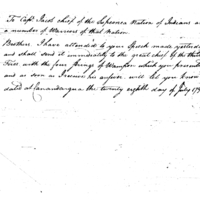 To Capt. Jacob chief of the Saponea Nation of Indians and
a number of Warriors of that Nation.
Brothers I have attended to your Speech made yesterday
and shall send it immediately to the great chief of the thirteen
Fires with the four Strings of Wampum which you presented
and as soon as I receive his answer will let you know
dated at Canandargua the twenty eighth day of July 179